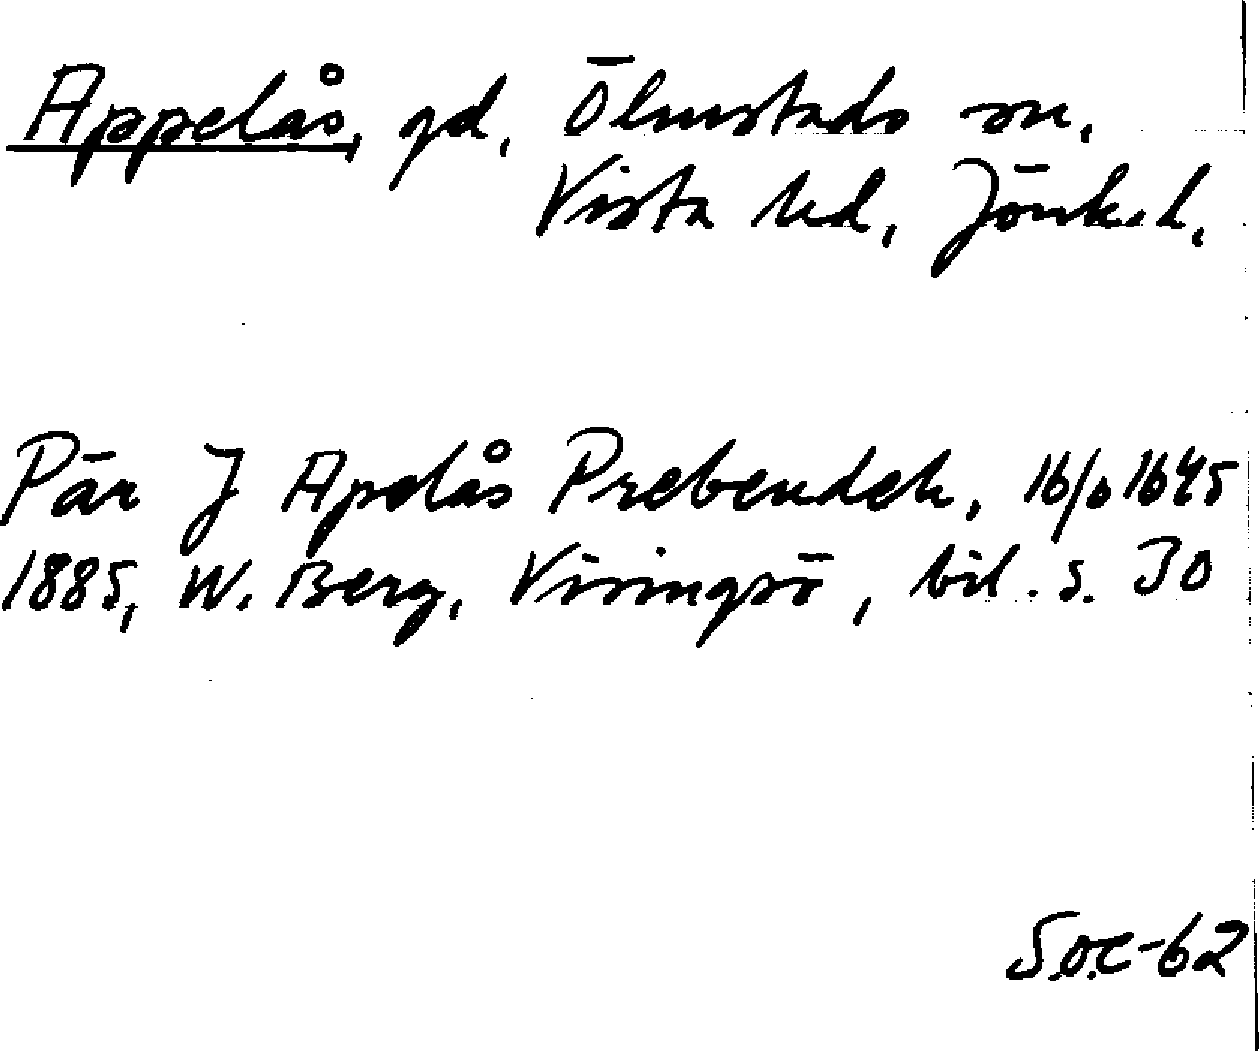 Appelås, gd, Ölmstads sn,
Vista hd, Jönk. l.
Pär J Apelås Prebendeh, 16/6 1645
1885, W. Berg, Visingsö, bil. s. 30
S.O.C-62